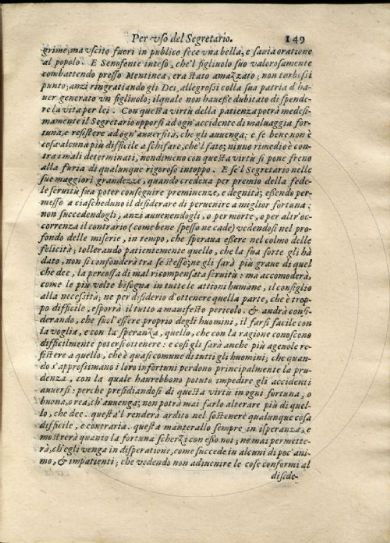 Per vso del Segretario. 149
grime, ma vscito fuori in publico fece vna bella, e sauia oratione
al popolo. E Senofonte inteso, che'l figliuolo suo valorosamente
combattendo presso Mentinea, era stato amazzato; non turbossi
punto; anzi ringratiando gli Dei, allegrossi colla sua patria d'ha
uer generato vn figliuolo, ilquale non hauesse dubitato di spende-
re la vita per lei. Con questa virtù della patienza potrà medesi-
mamente il Segretario opporsi ad ogn'accidente di maluaggia for-
tuna, e resistere ad ogn'auuersità, che gli auuenga; e se bene non è
cosa alcuna più difficile a schifare, che'l fato; niuno rimedio è con-
tra mali determinati, nondimeno con questa virtù si pone freno
alla furia di qualunque rigoroso intoppo. E se'l Segretario nelle
sue maggiori grandezze, quando credeua per premio della fede-
le seruitù sua poter conseguire preminenze, e dignità; essendo per-
messo a ciascheduno il desiderare di peruenire a miglior fortuna;
non succedendogli, anzi auuenendogli, o per morte, o per altr'oc-
correnza il contrario (come bene spesso ne cade) vedendosi nel pro-
fondo delle miserie, in tempo, che speraua essere nel colmo delle
felicità; tollerando patientemente quello, che la sua sorte gli hà
dato, non si confonderà tra se stesso; ne gli sarà più graue di quel
che dee, la percossa di mal ricompensata seruitù: ma accomoderà,
come le più volte bisogna in tutte le attioni humane, il consiglio
alla necessità; ne per desiderio d'ottenere quella parte, che è trop-
po difficile, esporrà il tutto a manifesto pericolo. & andrà consi-
derando, che suol'essere proprio degli huomini, il farsi facile con
la voglia, e con la speranza, quello, che con la ragione conoscono
difficilmente potersi ottenere: e così gli sarà anche più ageuole re-
sistere a quello, che è quasi comune di tutti gli huomini; che quan-
do s'approssimano i loro infortuni perdono principalmente la pru-
denza, con la quale haurebbono potuto impedire gli accidenti
auuersi: perche presidiandosi di questa virtù in ogni fortuna, o
buona, o rea, ch'auuenga; non potrà mai farlo alterare più di quel-
lo, che dee. questa'l renderà ardito nel sostenere qualunque cosa
difficile, e contraria. questa manterrallo sempre in isperanza, e
mostrerà quanto la fortuna scherzi con esso noi; ne mai permette-
rà, ch'egli venga in disperatione, come succede in alcuni di poc'ani-
mo, & impatienti; che vedendo non adiuenire le cose conformi al
diside-